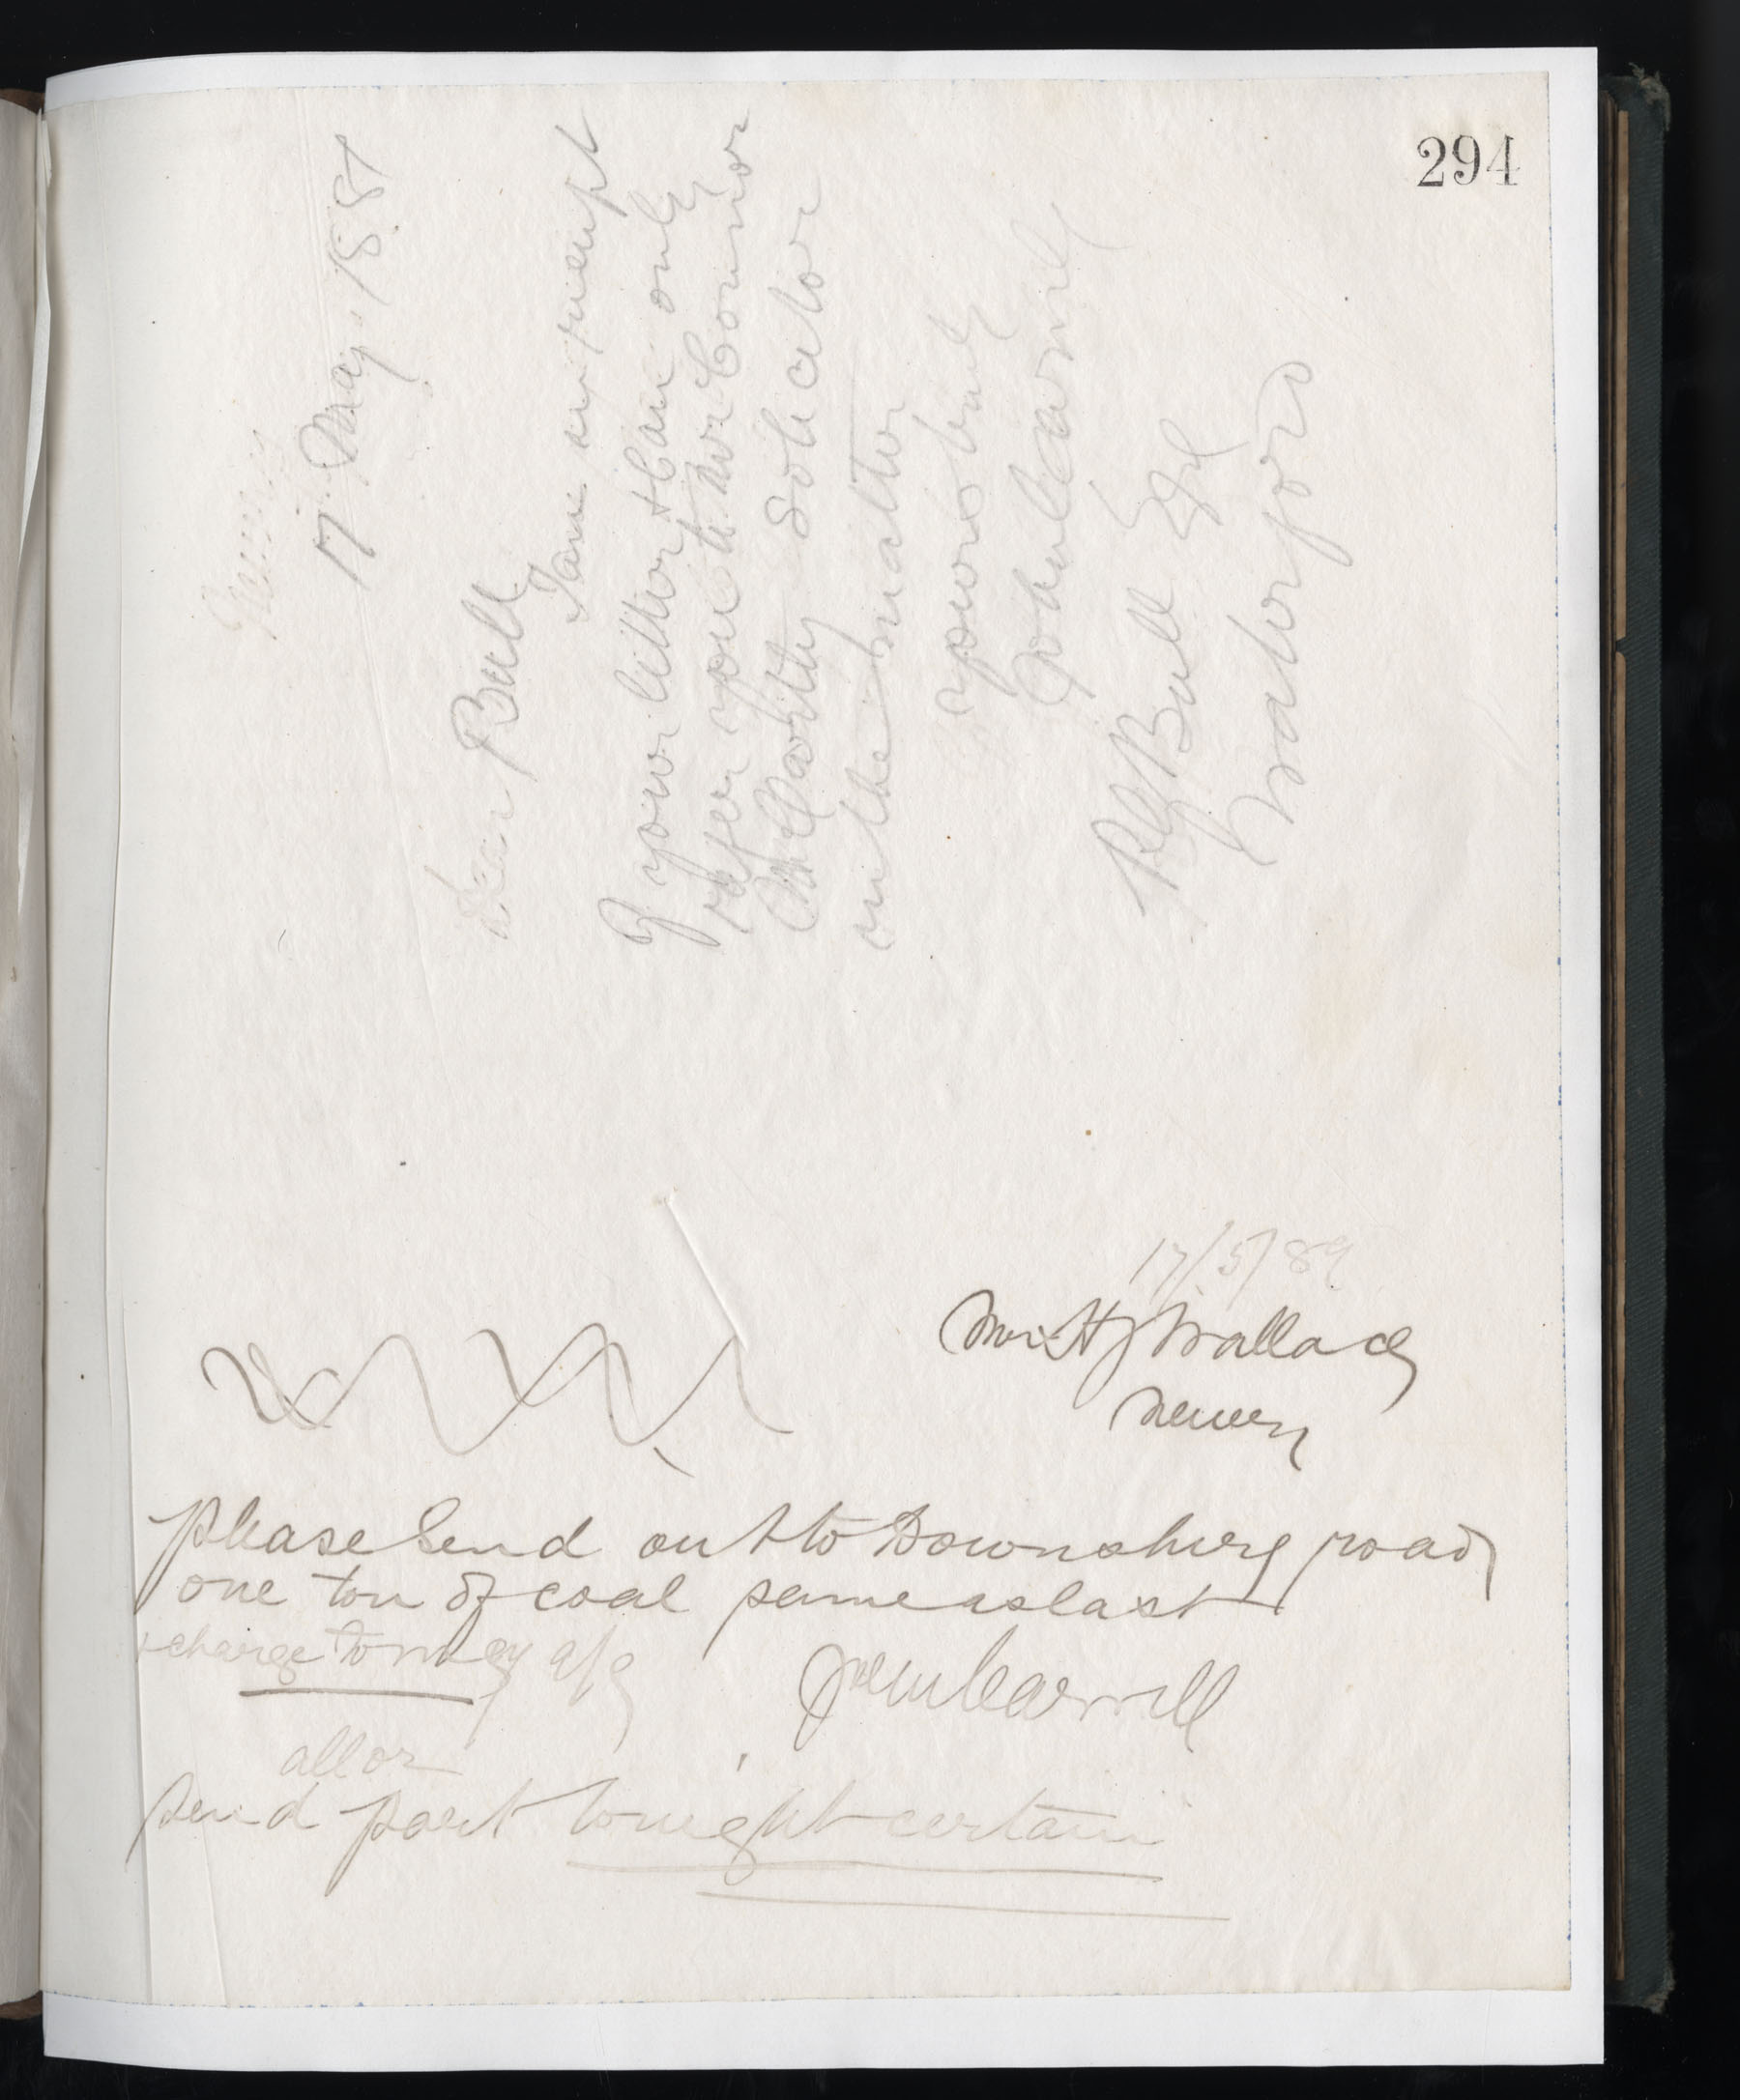 294
Newry
17 May 1889
Dear Bull
I am in receipt
of your letter & can only
refer you to Mr Connor
McCarthy Solicitor
in the matter
yours truly
John Carvill
R G Bull Esq
Waterford
17/5/89
Mr H J Wallace
Newry
please send out to Downshire road
one ton of coal same as last
& charge to my a/c
John Carvill
all or
send part tonight certain